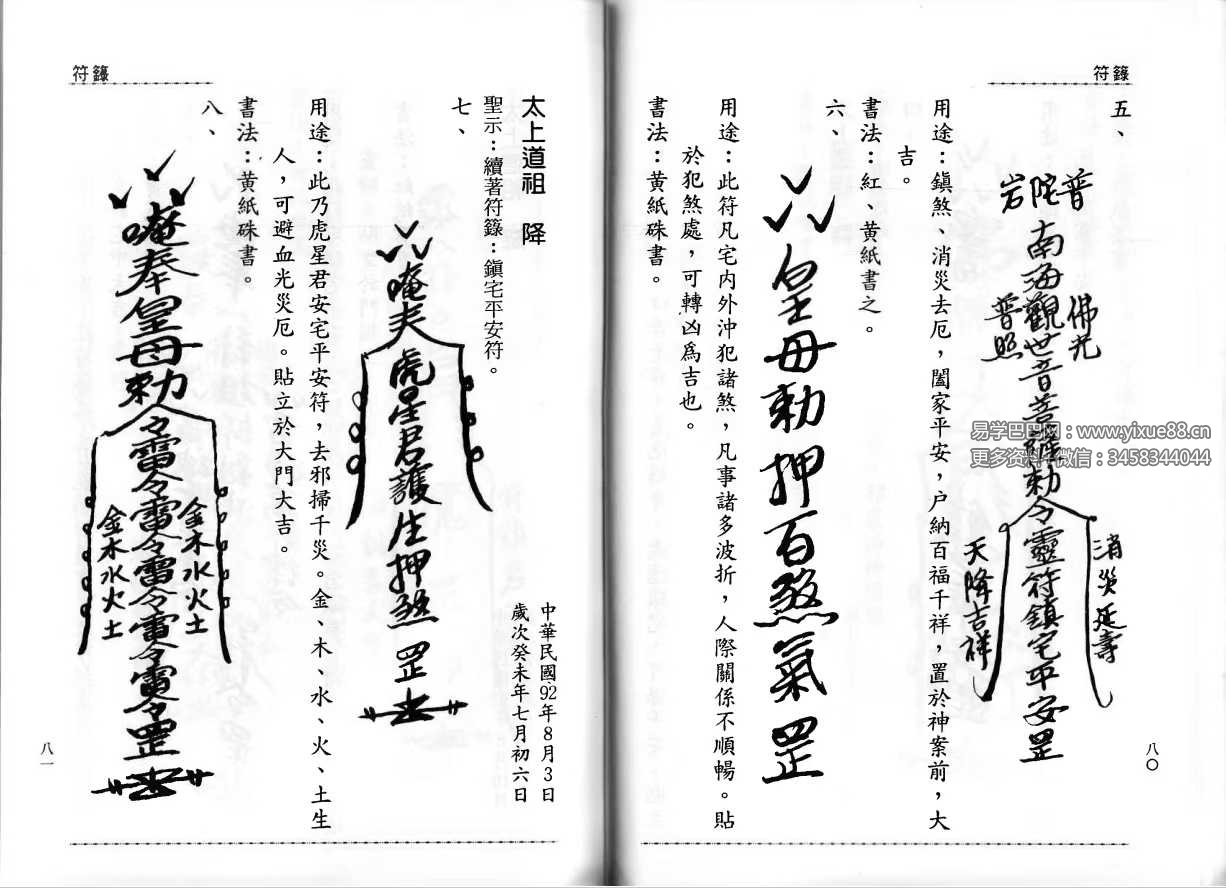 符籙
五、
普陀岩
南海觀世音菩薩勅令靈符鎮宅平安罡
佛光
普照
消災延壽
天降吉祥
用途：鎮煞、消災去厄，闔家平安，户納百福千祥，置於神案前，大
吉。
書法：紅、黃紙書之。
六、
皇母勅押百煞氣罡
用途：此符凡宅內外沖犯諸煞，凡事諸多波折，人際關係不順暢。貼
於犯煞處，可轉凶爲吉也。
書法：黃紙硃書。
八〇
符籙
太上道祖　降
中華民國92年8月3日
歲次癸未年七月初六日
聖示：續著符籙：鎮宅平安符。
七、
虎星君護佳押煞罡
用途：此乃虎星君安宅平安符，去邪掃千災。金、木、水、火、土生
人，可避血光災厄。貼立於大門大吉。
書法：黃紙硃書。
八、
唵奉皇母勅令雷令雷令雷令雷令雷令罡
金木水火土
金木水火土
八一
易学巴巴网：www.yixue88.cn
更多资料微信：3458344044